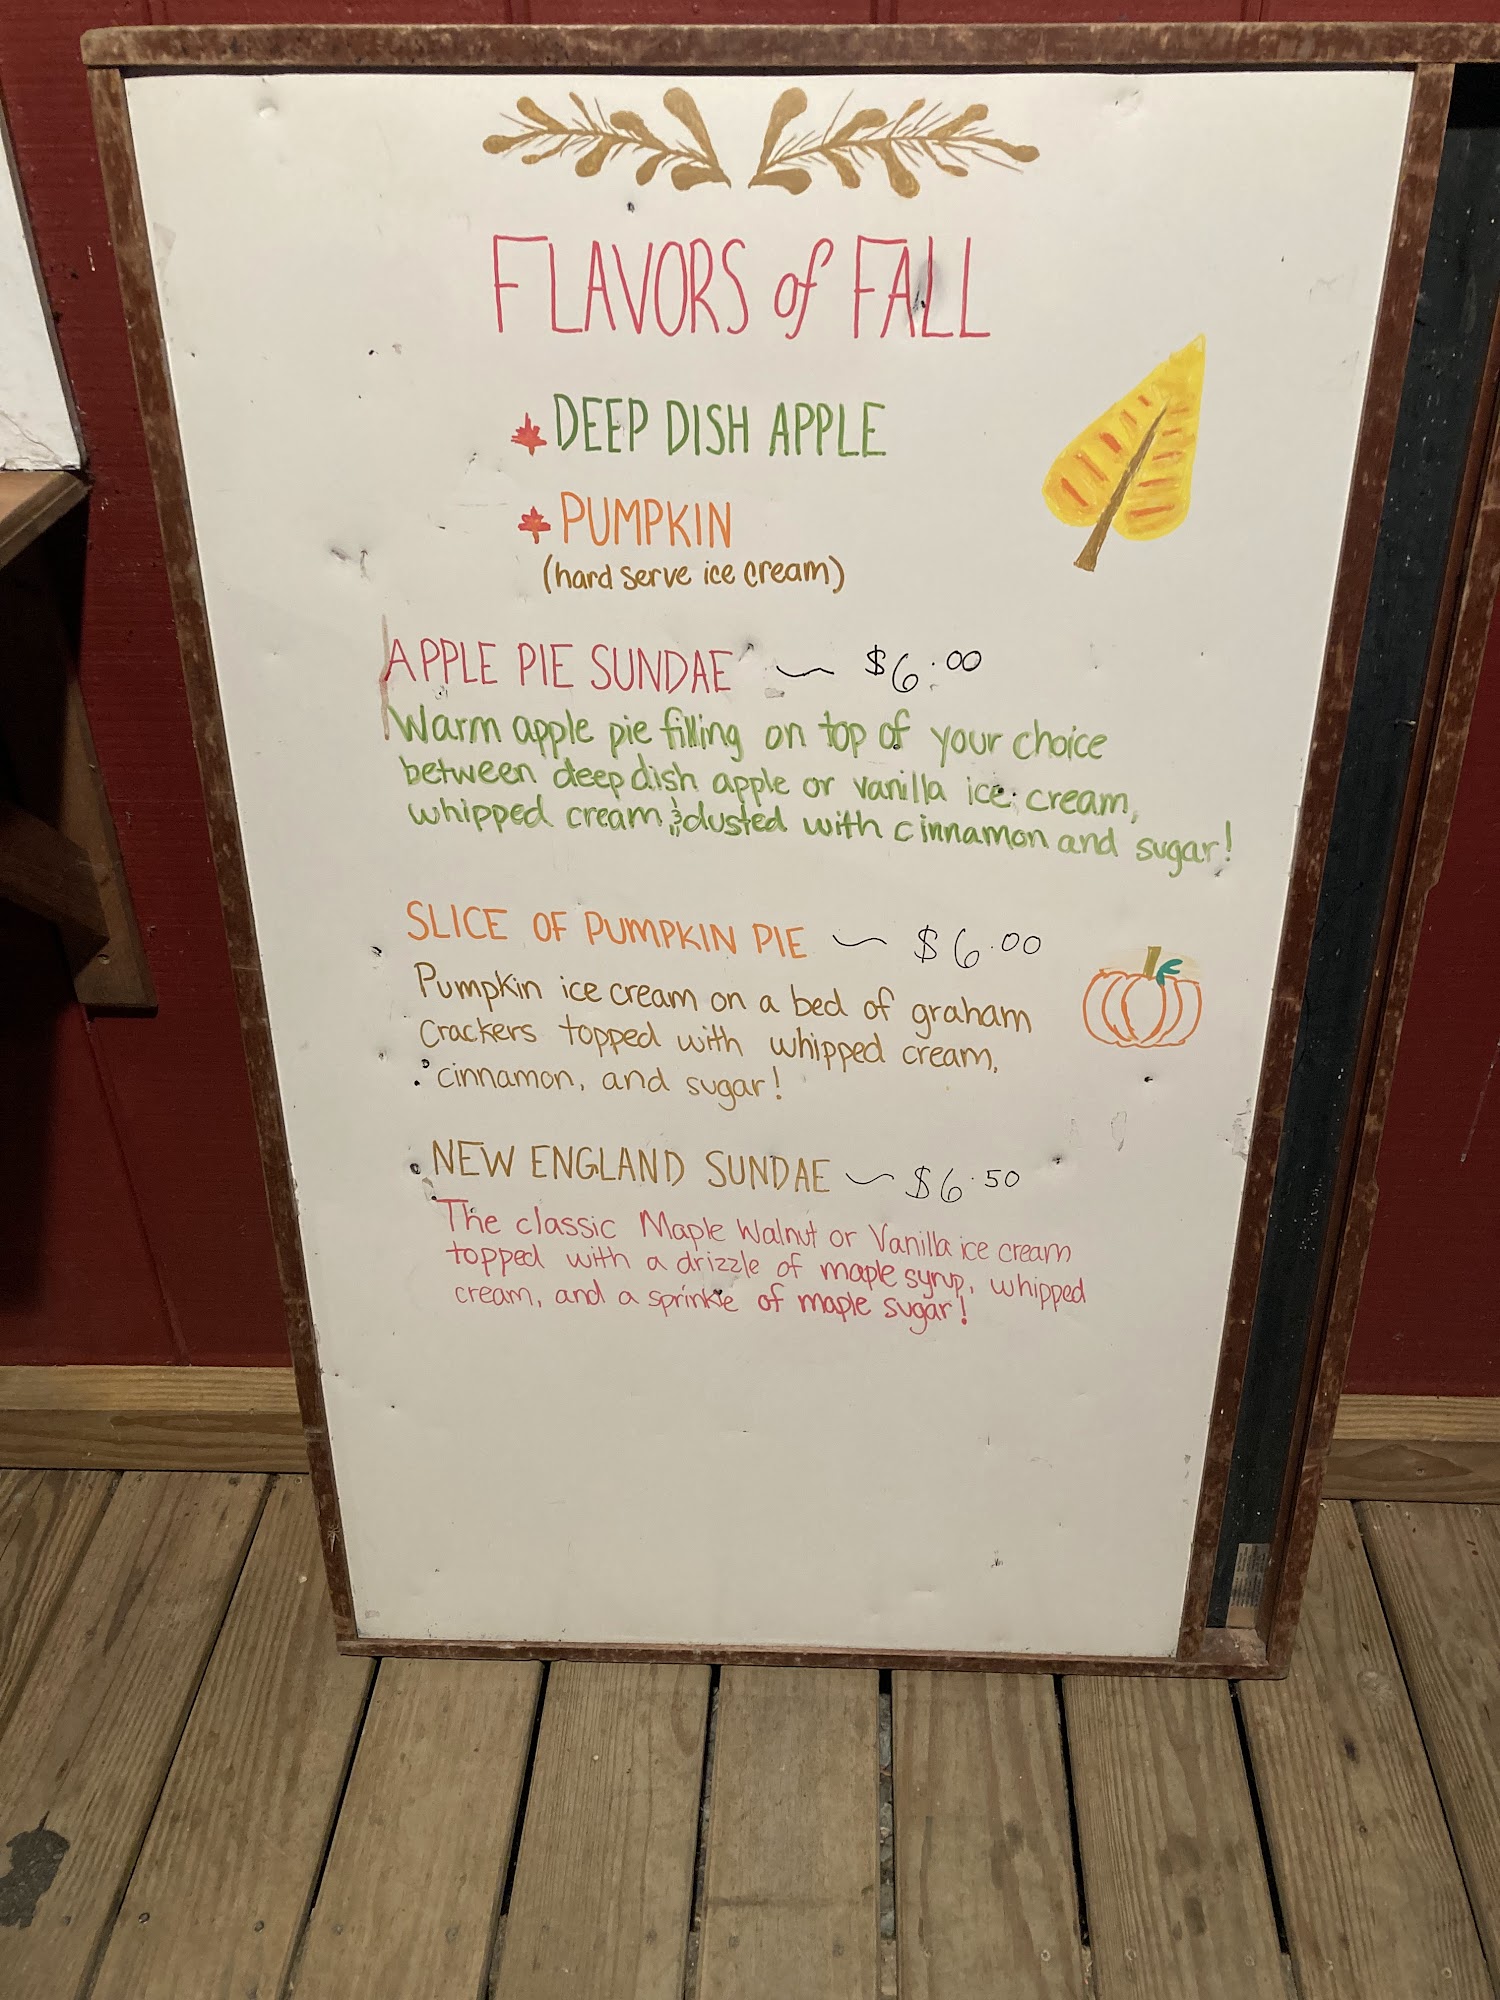 FLAVORS of FALL
DEEP DISH APPLE
PUMPKIN
(hard serve ice cream)
APPLE PIE SUNDAE ~ $6.00
Warm apple pie filling on top of your choice
between deep dish apple or vanilla ice cream,
whipped cream, & dusted with cinnamon and sugar!
SLICE OF PUMPKIN PIE ~ $6.00
Pumpkin ice cream on a bed of graham
crackers topped with whipped cream,
cinnamon, and sugar!
NEW ENGLAND SUNDAE ~ $6.50
The classic Maple Walnut or Vanilla ice cream
topped with a drizzle of maple syrup, whipped
cream, and a sprinkle of maple sugar!